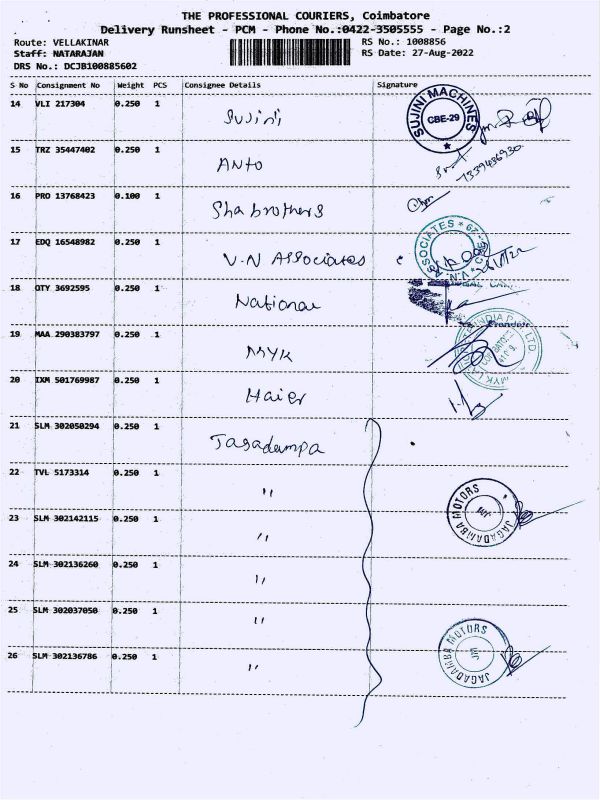 THE PROFESSIONAL COURIERS, Coimbatore
Delivery Runsheet - PCM - Phone No.:0422-3505555 - Page No.:2
Route: VELLAKINAR RS No.: 1008856
Staff: NATARAJAN RS Date: 27-Aug-2022
DRS No.: DCJB100885602
S No Consignment No Weight PCS Consignee Details Signature
14 VLI 217304 0.250 1 Sujini SUJINI MACHINES CBE-29
15 TRZ 35447402 0.250 1 Anto
16 PRO 13768423 0.100 1 Sha brothers
17 EDQ 16548982 0.250 1 V.N Associates V.N. ASSOCIATES
18 QTY 3692595 0.250 1 National
19 MAA 290383797 0.250 1 MYK
20 IXM 501769987 0.250 1 Haier
21 SLM 302050294 0.250 1 Jagadampa
22 TVL 5173314 0.250 1 " JAGADAMBA MOTORS JM
23 SLM 302142115 0.250 1 "
24 SLM 302136260 0.250 1 "
25 SLM 302037050 0.250 1 " JAGADAMBA MOTORS JM
26 SLM 302136786 0.250 1 "